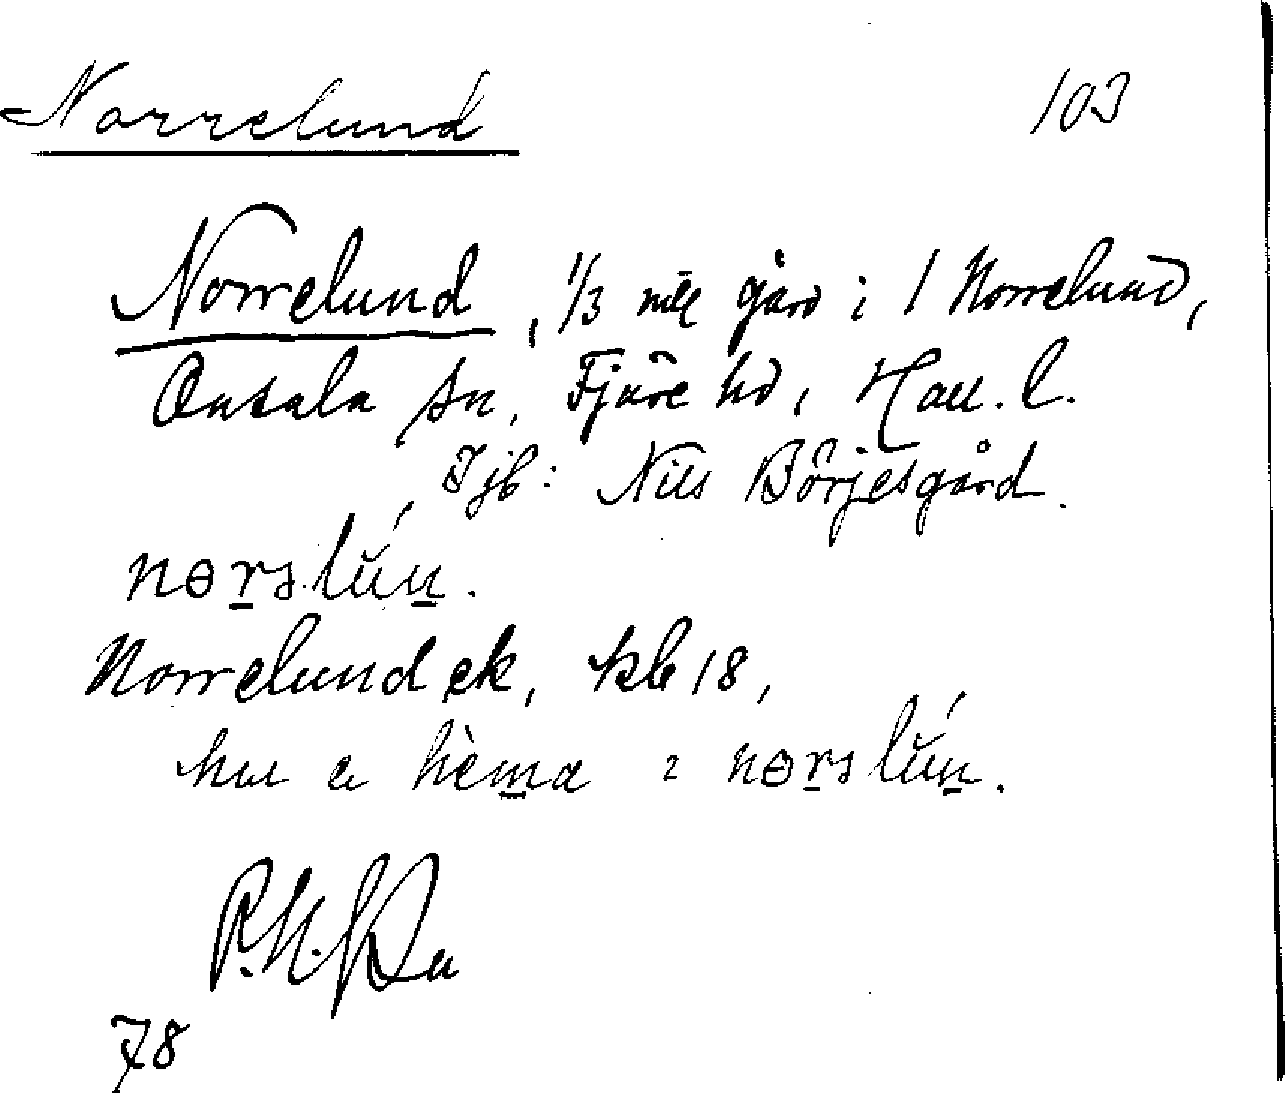 Norrelund 103
Norrelund, 1/3 mtl gård i 1 Norrelund,
Onsala sn, Fjäre hd, Hall. l.
Jjb: Nils Börjesgård.
nɵrəlŭn.
Norrelund ek, kbl 18,
hɯ æ hèma ɪ nɵrəlŭn.
78